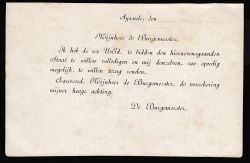 Sysseele, den
Mijnheer de Burgemeester.
Ik heb de eer UwEd. te bidden den hiernevensgaanden
Staat te willen volledigen en mij denzelven, zoo spoedig
mogelijk, te willen terug zenden.
Aanveerd, Mijnheer de Burgemeester, de verzekering
mijner hooge achting.
De Burgemeester,